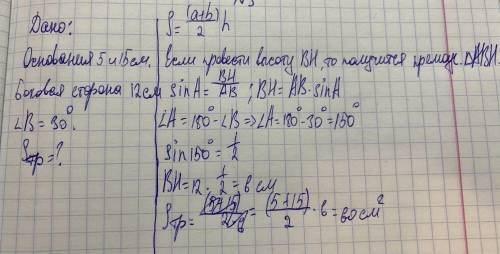 Дано:
Основания 5 и 15см.
боковая сторона 12см
∠B = 30°.
Sтр = ?
S = (a+b)/2 h
Если провести высоту BH, то получится прямоуг. △ABH.
sinA = BH/AB ; BH = AB · sinA
∠A = 180° - ∠B => ∠A = 180° - 30° = 150°
sin150° = 1/2
BH = 12 · 1/2 = 6 см
Sтр = (5+15)/2·6 = (5+15)/2 · 6 = 60 см²